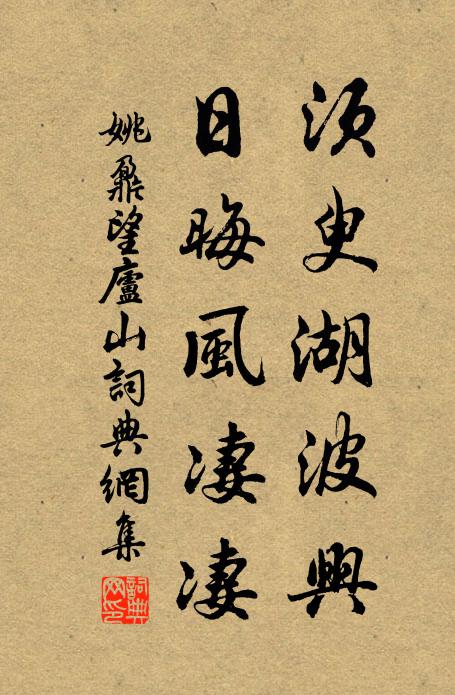 須臾湖波興
日晦風淒淒
姚鼐望廬山詞典網集
詞典網印